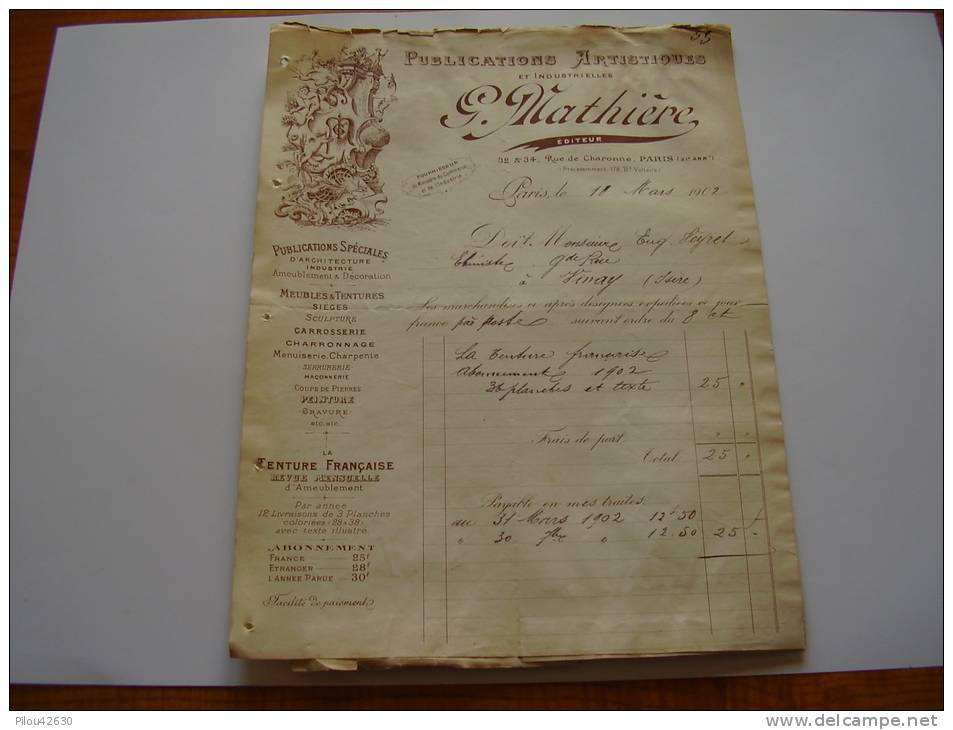 55
PUBLICATIONS ARTISTIQUES
ET INDUSTRIELLES
G. Mathière
EDITEUR
32 & 34, Rue de Charonne, PARIS (XIe ARRt)
(Précédemment, 178, Bd Voltaire)
FOURNISSEUR
du Ministère du Commerce
et de l'Industrie
Paris, le 11 Mars 1902
Doit Monsieur Eug. Veyret
Ebéniste gde Rue
à Vinay (Isère)
Les marchandises ci après désignées expédiées ce jour
franco par poste suivant ordre du 8 ct
La Tenture française
Abonnement 1902
36 planches et texte 25 "
Frais de port " "
Total 25 "
Payable en mes traites
au 31 Mars 1902 12f50
" 30 7bre " 12.50 25 -
PUBLICATIONS SPÉCIALES
D'ARCHITECTURE
INDUSTRIE
Ameublement & Décoration
MEUBLES & TENTURES
SIÈGES
SCULPTURE
CARROSSERIE
CHARRONNAGE
Menuiserie, Charpente
SERRURERIE
MAÇONNERIE
COUPE DE PIERRES
PEINTURE
GRAVURE
etc. etc.
LA
TENTURE FRANÇAISE
REVUE MENSUELLE
d'Ameublement
Par année
12 Livraisons de 3 Planches
coloriées (28x38)
avec texte illustré
ABONNEMENT
FRANCE 25f
ETRANGER 28f
L'ANNÉE PARUE 30f
Facilité de paiement
Pilou42630
delcampe.net